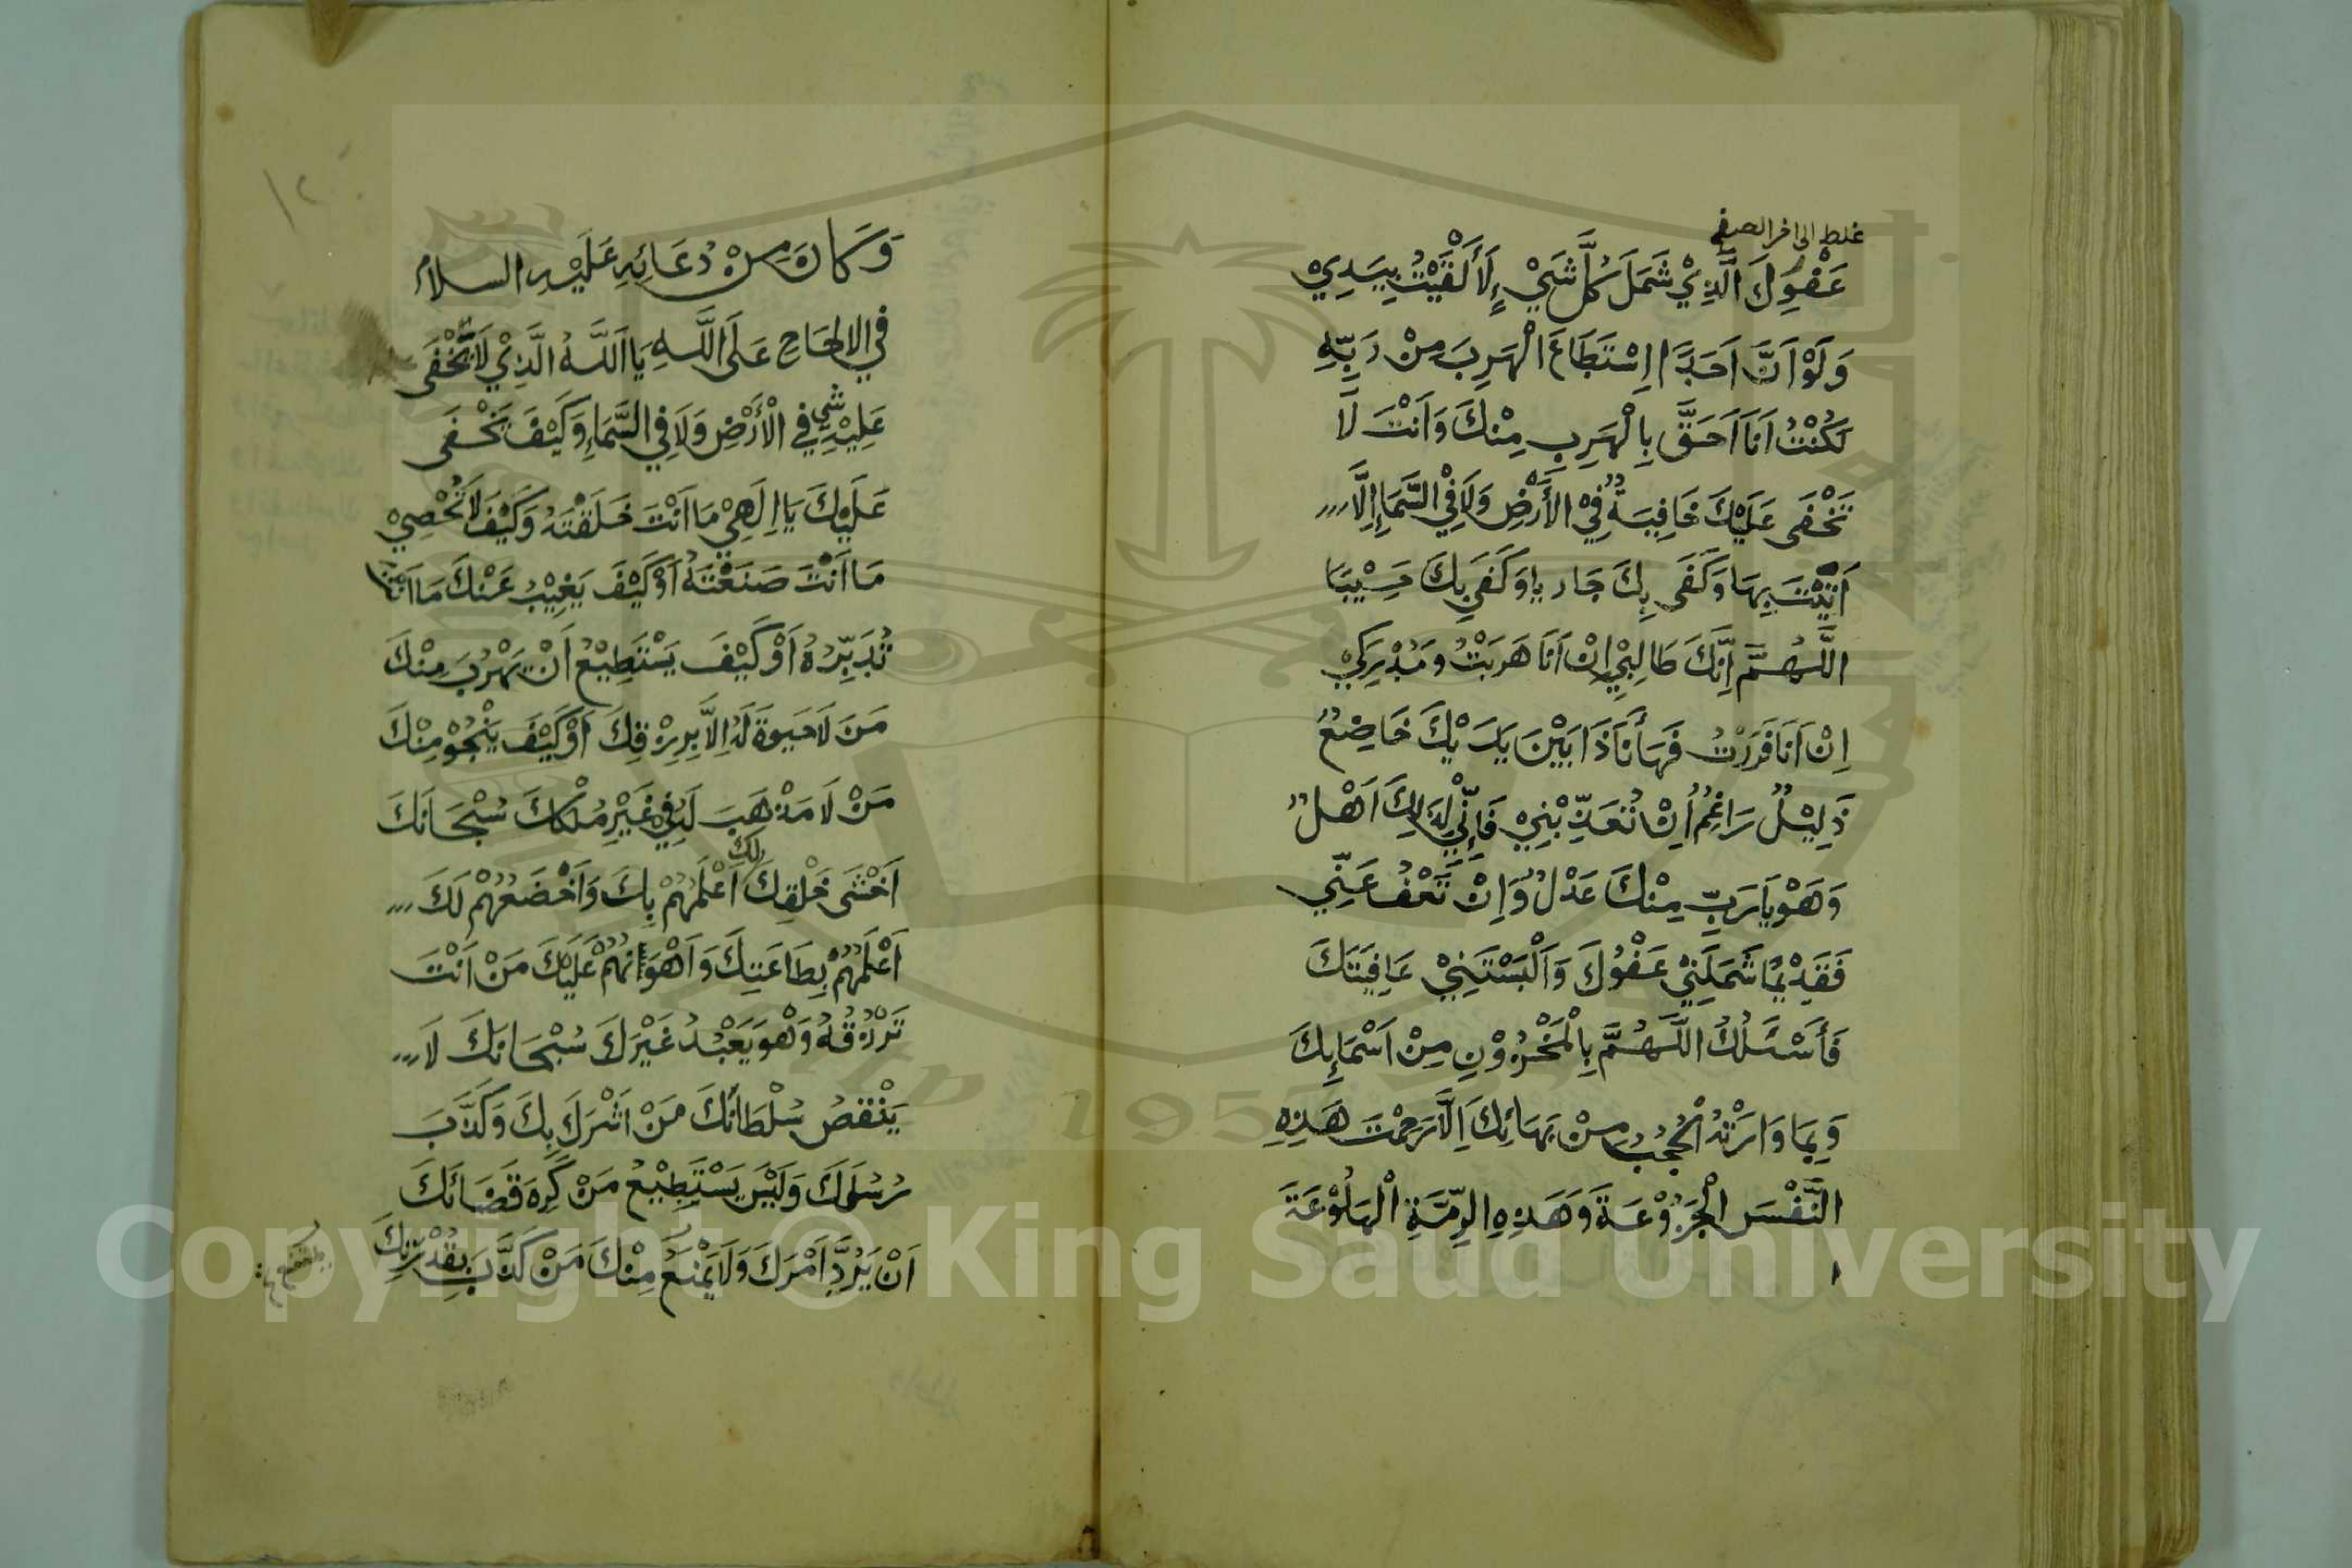 غلط الى اخر الصفح
عَفْوِكَ الَّذِيْ شَمَلَ كُلَّ شَيْءٍ لَأَلْقَيْتُ بِيَدِيْ
وَلَوْ اَنَّ اَحَدًا اِسْتَطَاعَ الْهَرِبَ مِنْ رَبِّهِ
لَكُنْتُ اَنَا اَحَقَّ بِالْهَرِبِ مِنْكَ وَاَنْتَ لَا
تَخْفَى عَلَيْكَ خَافِيَةٌ فِيْ الأَرْضِ وَلَا فِيْ السَّمَاءِ اِلَّا
اَتَيْتَ بِهَا وَكَفَى بِكَ جَازِيا وَكَفَى بِكَ حَسِيْبًا
اللَّهُمَّ اِنَّكَ طَالِبِيْ اِنْ اَنَا هَرَبْتُ وَمُدْرِكِيْ
اِنْ اَنَا فَرَرْتُ فَهَا أَنَا ذَا بَيْنَ يَدَيْكَ خَاضِعٌ
ذَلِيْلٌ رَاغِمٌ اِنْ تُعَذِّبْنِيْ فَاِنِّيْ لِذَالِكَ اَهْلٌ
وَهْوَ يَا رَبِّ مِنْكَ عَدْلٌ وَاِنْ تَعْفُ عَنِّيْ
فَقَدِيْمًا شَمَلَنِيْ عَفْوُكَ وَاَلْبَسْتَنِيْ عَافِيَتَكَ
فَأَسْئَلُكَ اللَّهُمَّ بِالْمَخْزُوْنِ مِنْ اَسْمَائِكَ
وَبِمَا وَارَتْهُ الْحُجُبُ مِنْ بَهَائِكَ اِلَّا رَحِمْتَ هَذِهِ
النَّفْسَ الْجَزُوْعَةَ وَهَذِهِ الرِّمَّةَ الْهَلُوْعَةَ
وَكَانَ مِنْ دُعَائِهِ عَلَيْهِ السلام
فِي الالحَاحِ عَلَى اللَّهِ يَا اَللَّهُ الَّذِيْ لَا يَخْفَى
عَلَيْهِ شي فِي الْأَرْضِ وَلَا فِي السَّمَاءِ وَكَيْفَ يَخْفَى
عَلَيْكَ يَا اِلَهِيْ مَا اَنْتَ خَلَقْتَهُ وَكَيْفَ لَا تُحْصِيْ
مَا اَنْتَ صَنَعْتَهُ اَوْ كَيْفَ يَغِيْبُ عَنْكَ مَا اَنْتَ
تُدَبِّرُهُ اَوْ كَيْفَ يَسْتَطِيْعُ اَنْ يَهْرُبَ مِنْكَ
مَنْ لَا حَيوةَ لَهُ اِلَّا بِرِزْقِكَ اَوْ كَيْفَ يَنْجُوْ مِنْكَ
مَنْ لَا مَذْهَبَ لَهُ فِي غَيْرِ مُلْكِكَ سُبْحَانَكَ
اَخْشَى خَلْقِكَ لك اَعْلَمُهُمْ بِكَ وَاَخْضَعُهُمْ لَكَ
اَعْلَمُهُمْ بِطَاعَتِكَ وَاَهْوَانُهُمْ عَلَيْكَ مَنْ اَنْتَ
تَرْزُقُهُ وَهْوَ يَعْبُدُ غَيْرَكَ سُبْحَانَكَ لَا
يَنْقصُ سُلْطَانَكَ مَنْ اَشْرَكَ بِكَ وَكَذَّبَ
رُسُلَكَ وَلَيْسَ يَسْتَطِيْعُ مَنْ كَرِهَ قَضَائَكَ
اَنْ يَرُدَّ اَمْرَكَ وَلَا يَمْنَعُ مِنْكَ مَنْ كَذَّبَ بِقُدْرَتِكَ
Copyright © King Saud University
1957